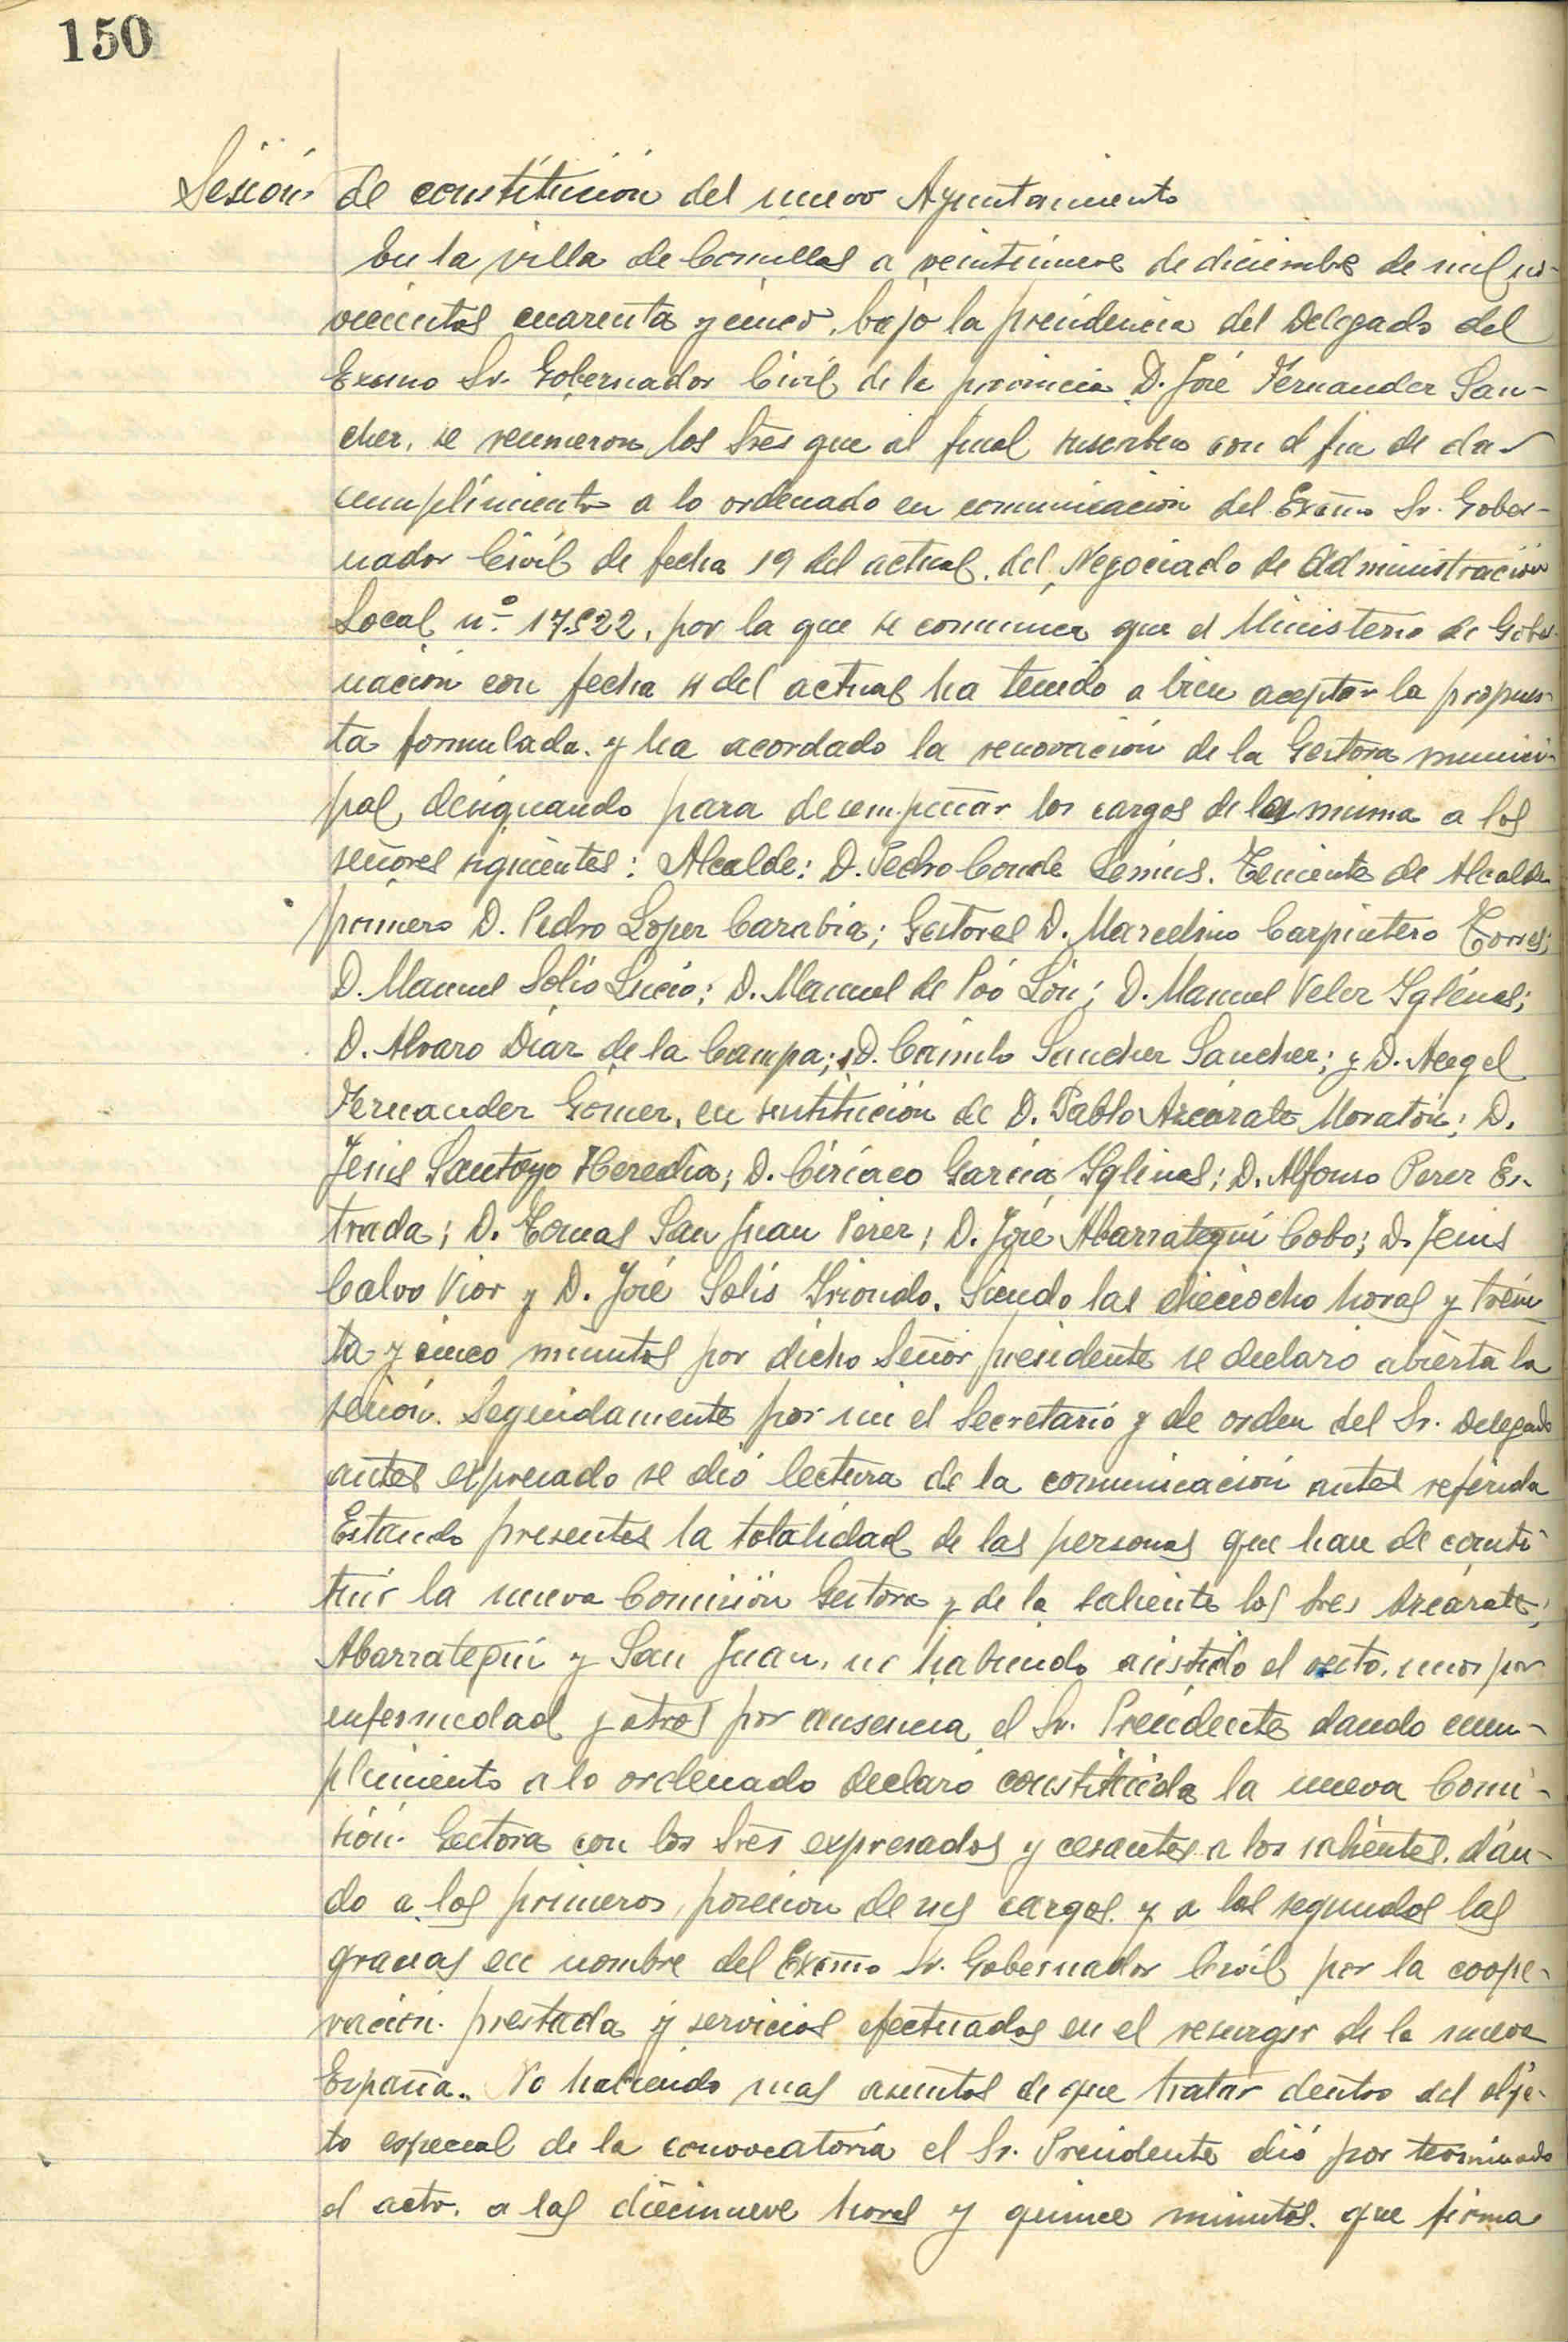 150
Sesión de constitución del nuevo Ayuntamiento
En la villa de Comillas a veintinueve de diciembre de mil no-
vecientos cuarenta y cinco, bajo la presidencia del Delegado del
Excmo Sr. Gobernador Civil de la provincia D. José Fernandez San-
chez, se reunieron los Sres que al final suscriben con el fin de dar
cumplimiento a lo ordenado en comunicación del Excmo Sr. Gober-
nador Civil de fecha 19 del actual, del Negociado de Administración
Local nº 17.522, por la que se comunica que el Ministerio de Gober-
nación con fecha 4 del actual ha tenido a bien aceptar la propues-
ta formulada y ha acordado la renovación de la Gestora munici-
pal, designando para desempeñar los cargos de la misma a los
señores siguientes: Alcalde: D. Pedro Conde. Teniente de Alcalde
primero D. Pedro Lopez Carabia; Gestores D. Marcelino Carpintero Torres;
D. Manuel Solis Lucio; D. Manuel de Poó; D. Manuel Velez Yglesias;
D. Alvaro Díaz de la Campa; D. Camilo Sanchez Sanchez; y D. Angel
Fernandez Gómez, en sustitución de D. Pablo Azcárate Moratón; D.
Jesus Santoyo Heredia; D. Ciriaco García Yglesias; D. Alfonso Perez Es-
trada; D. Tomas San Juan Perez; D. José Abarrategui Cobo; D. Jesus
Calvo Vior y D. José Solís Yriondo. Siendo las dieciocho horas y trein-
ta y cinco minutos por dicho Señor presidente se declaró abierta la
sesión. Seguidamente por mi el Secretario y de orden del Sr. Delegado
antes expresado se dió lectura de la comunicación antes referida
Estando presentes la totalidad de las personas que han de consti-
tuir la nueva Comisión Gestora y de la saliente los Sres Azcárate;
Abarrategui y San Juan, no habiendo asistido el resto, unos por
enfermedad y otros por ausencia, el Sr. Presidente dando cum-
plimiento a lo ordenado declaró constituida la nueva Comi-
sión Gestora con los Sres expresados y cesantes a los salientes, dán-
do a los primeros posesion de sus cargos y a los segundos las
gracias en nombre del Excmo Sr. Gobernador Civil por la coope-
ración prestada y servicios efectuados en el resurgir de la nueva
España. No habiendo mas asuntos de que tratar dentro del obje-
to especial de la convocatoria el Sr. Presidente dió por terminado
el acto, a las diecinueve horas y quince minutos, que firma